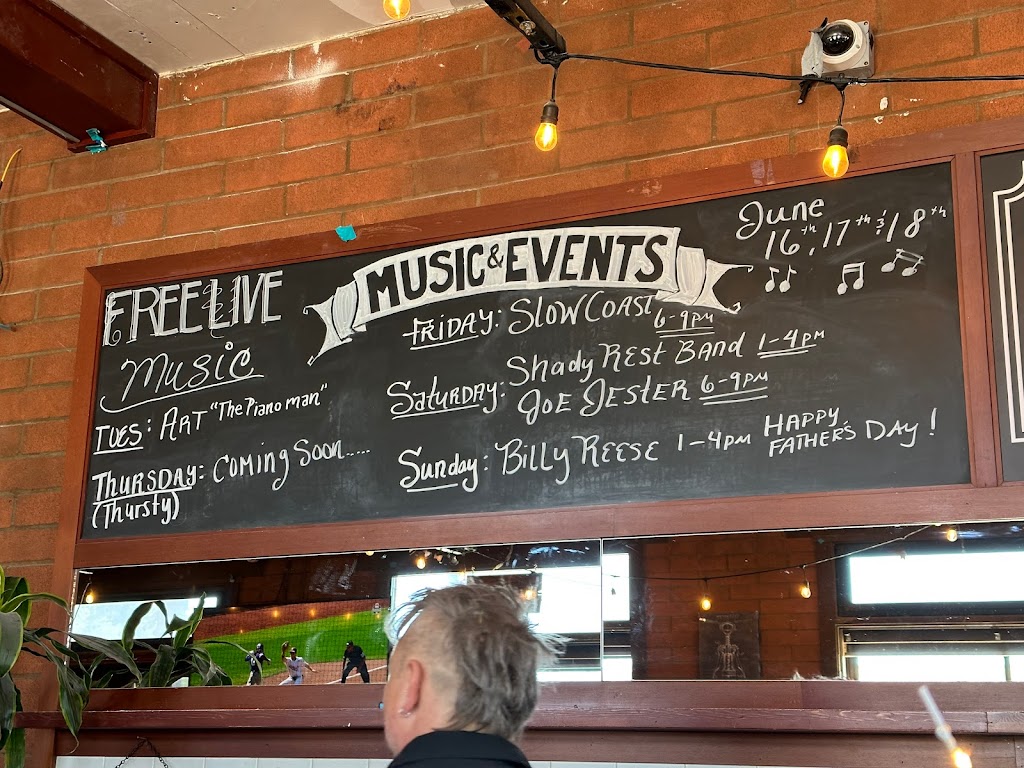 FREE LIVE
Music
TUES: ART "The Piano man"
THURSDAY: COMING SOON.....
(Thursty)
MUSIC & EVENTS
June
16th, 17th & 18th
FRIDAY: SLOW COAST 6-9PM
SATURDAY: Shady REST BAND 1-4PM
JOE JESTER 6-9PM
Sunday: BILLY REESE 1-4PM HAPPY
FATHER'S DAY!